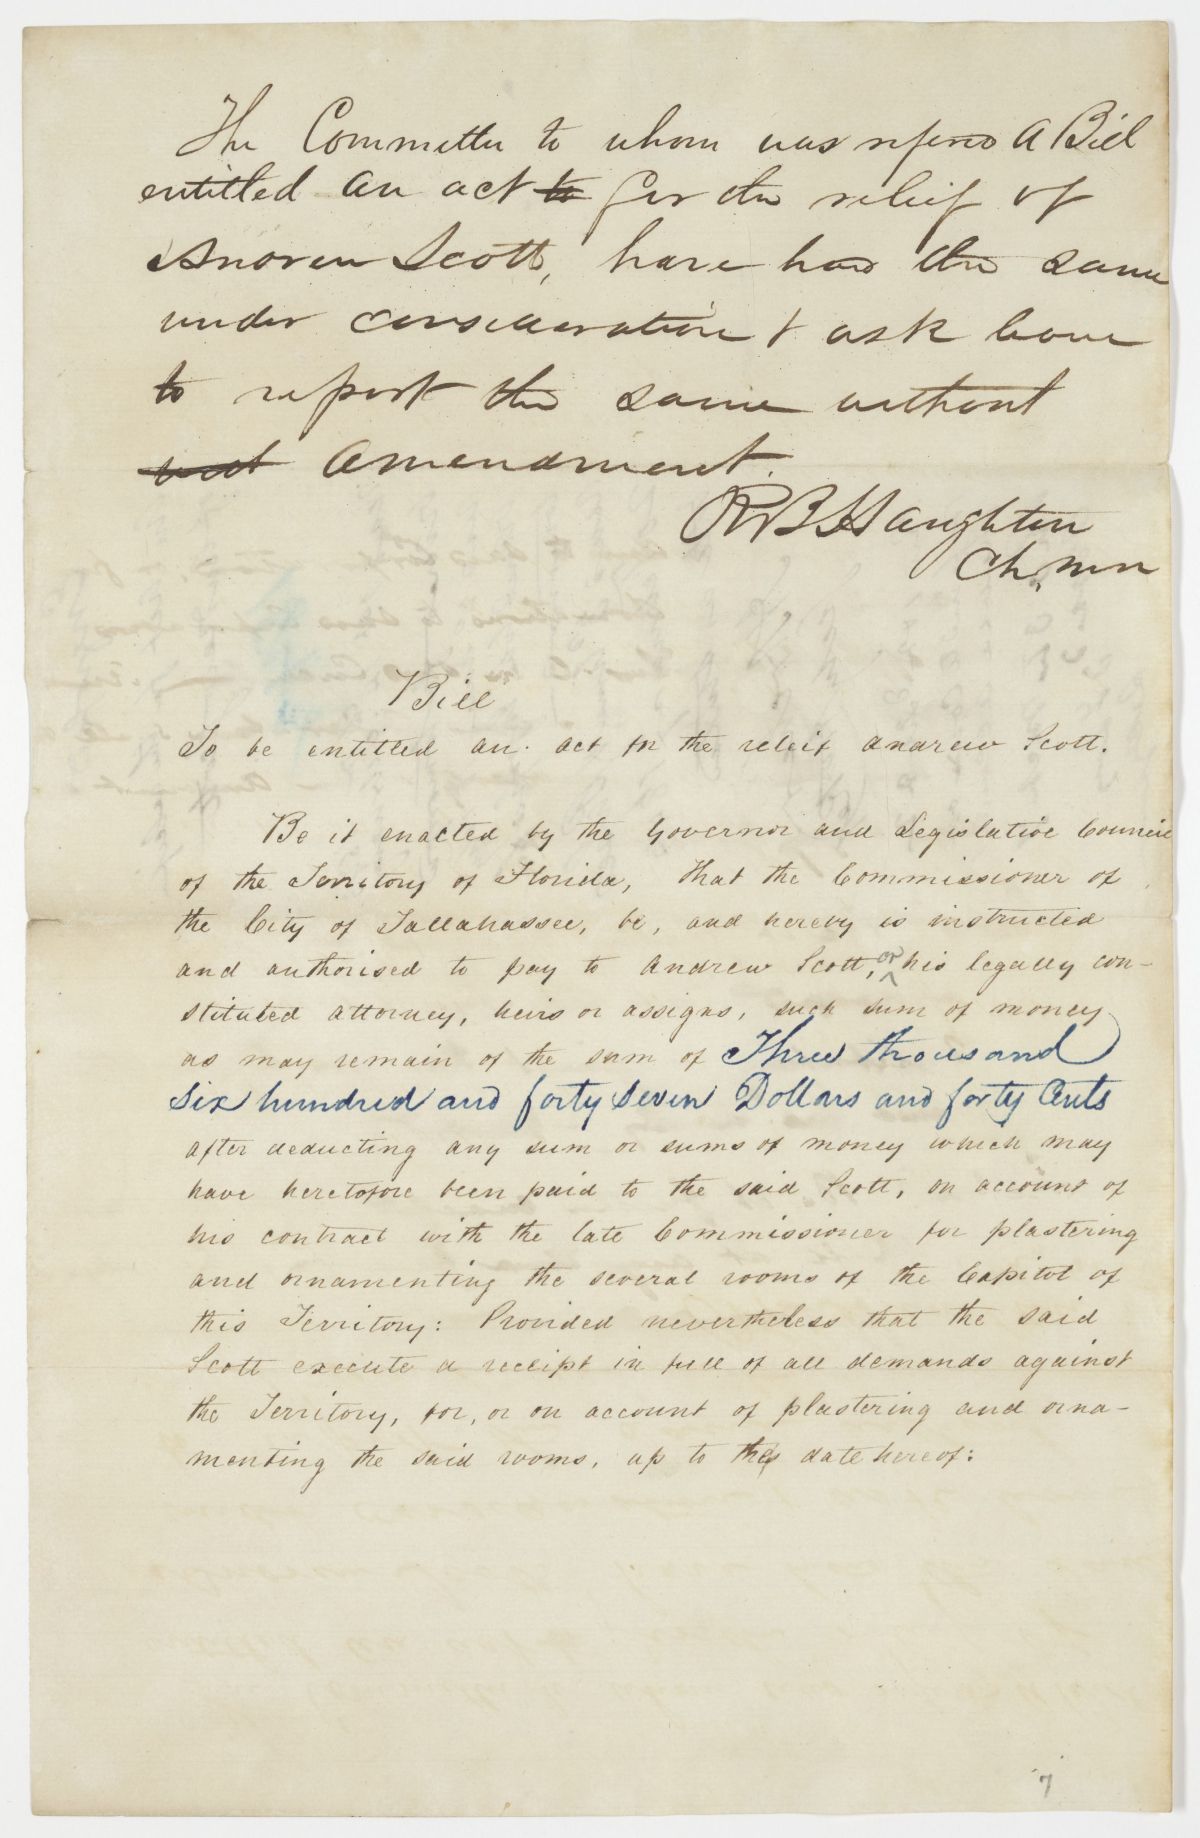 The Committee to whom was refered A Bill
entitled An act to for the relief of
Andrew Scott, have had the same
under consideration & ask leave
to report the same without
Amendment.
R B Haughton
Ch,mn
Bill
To be entitled an act for the releif Andrew Scott.
Be it enacted by the Governor and Legislative Council
of the Territory of Florida, That the Commissioner of
the City of Tallahassee, be, and hereby is instructed
and authorised to pay to Andrew Scott, or his legally con-
stituted attorney, heirs or assigns, such sum of money
as may remain of the sum of Three thousand
Six hundred and forty seven Dollars and forty Cents
after deducting any sum or sums of money which may
have heretofore been paid to the said Scott, on account of
his contract with the late Commissioner for plastering
and ornamenting the several rooms of the Capitol of
this Territory: Provided nevertheless that the said
Scott execute a receipt in full of all demands against
the Territory, for, or on account of plastering and orna-
menting the said rooms, up to the date hereof:
7